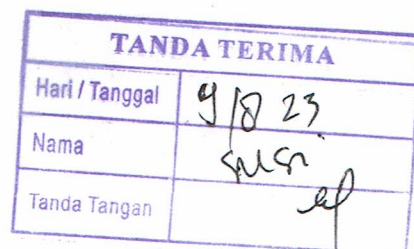 TANDA TERIMA
Hari / Tanggal 9/8 23
Nama Susi
Tanda Tangan